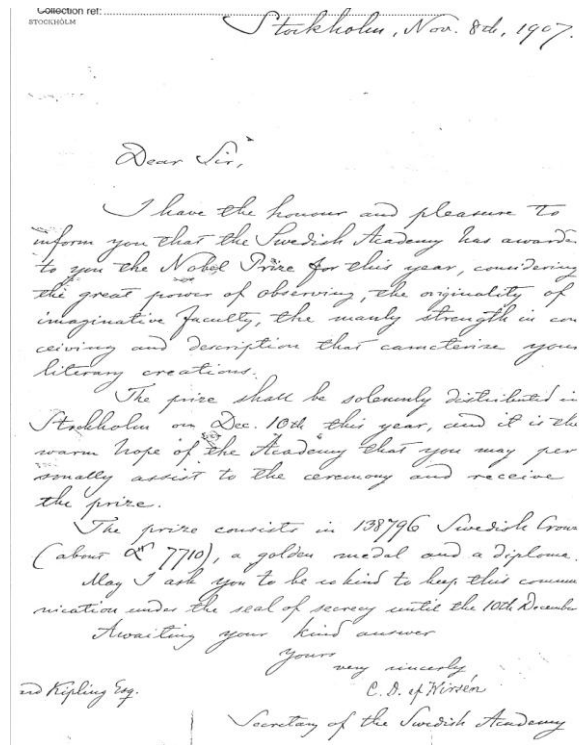 Collection ref:
STOCKHOLM
Stockholm, Nov. 8th, 1907.
Dear Sir,
I have the honour and pleasure to
inform you that the Swedish Academy has awarde
to you the Nobel Prize for this year, considering
the great power of observing, the originality of
imaginative faculty, the manly strength in con
ceiving and description that caracterise your
literary creations.
The prize shall be solemnly distributed in
Stockholm on Dec. 10th this year, and it is the
warm hope of the Academy that you may per
sonally assist to the ceremony and receive
the prize.
The prize consists in 138796 Swedish Crown
(about 7710), a golden medal and a diploma.
May I ask you to be so kind to keep this commu
nication under the seal of secrecy until the 10th December
Awaiting your kind answer
Yours
very sincerely
rd Kipling Esq. C. D. af Wirsén
Secretary of the Swedish Academy